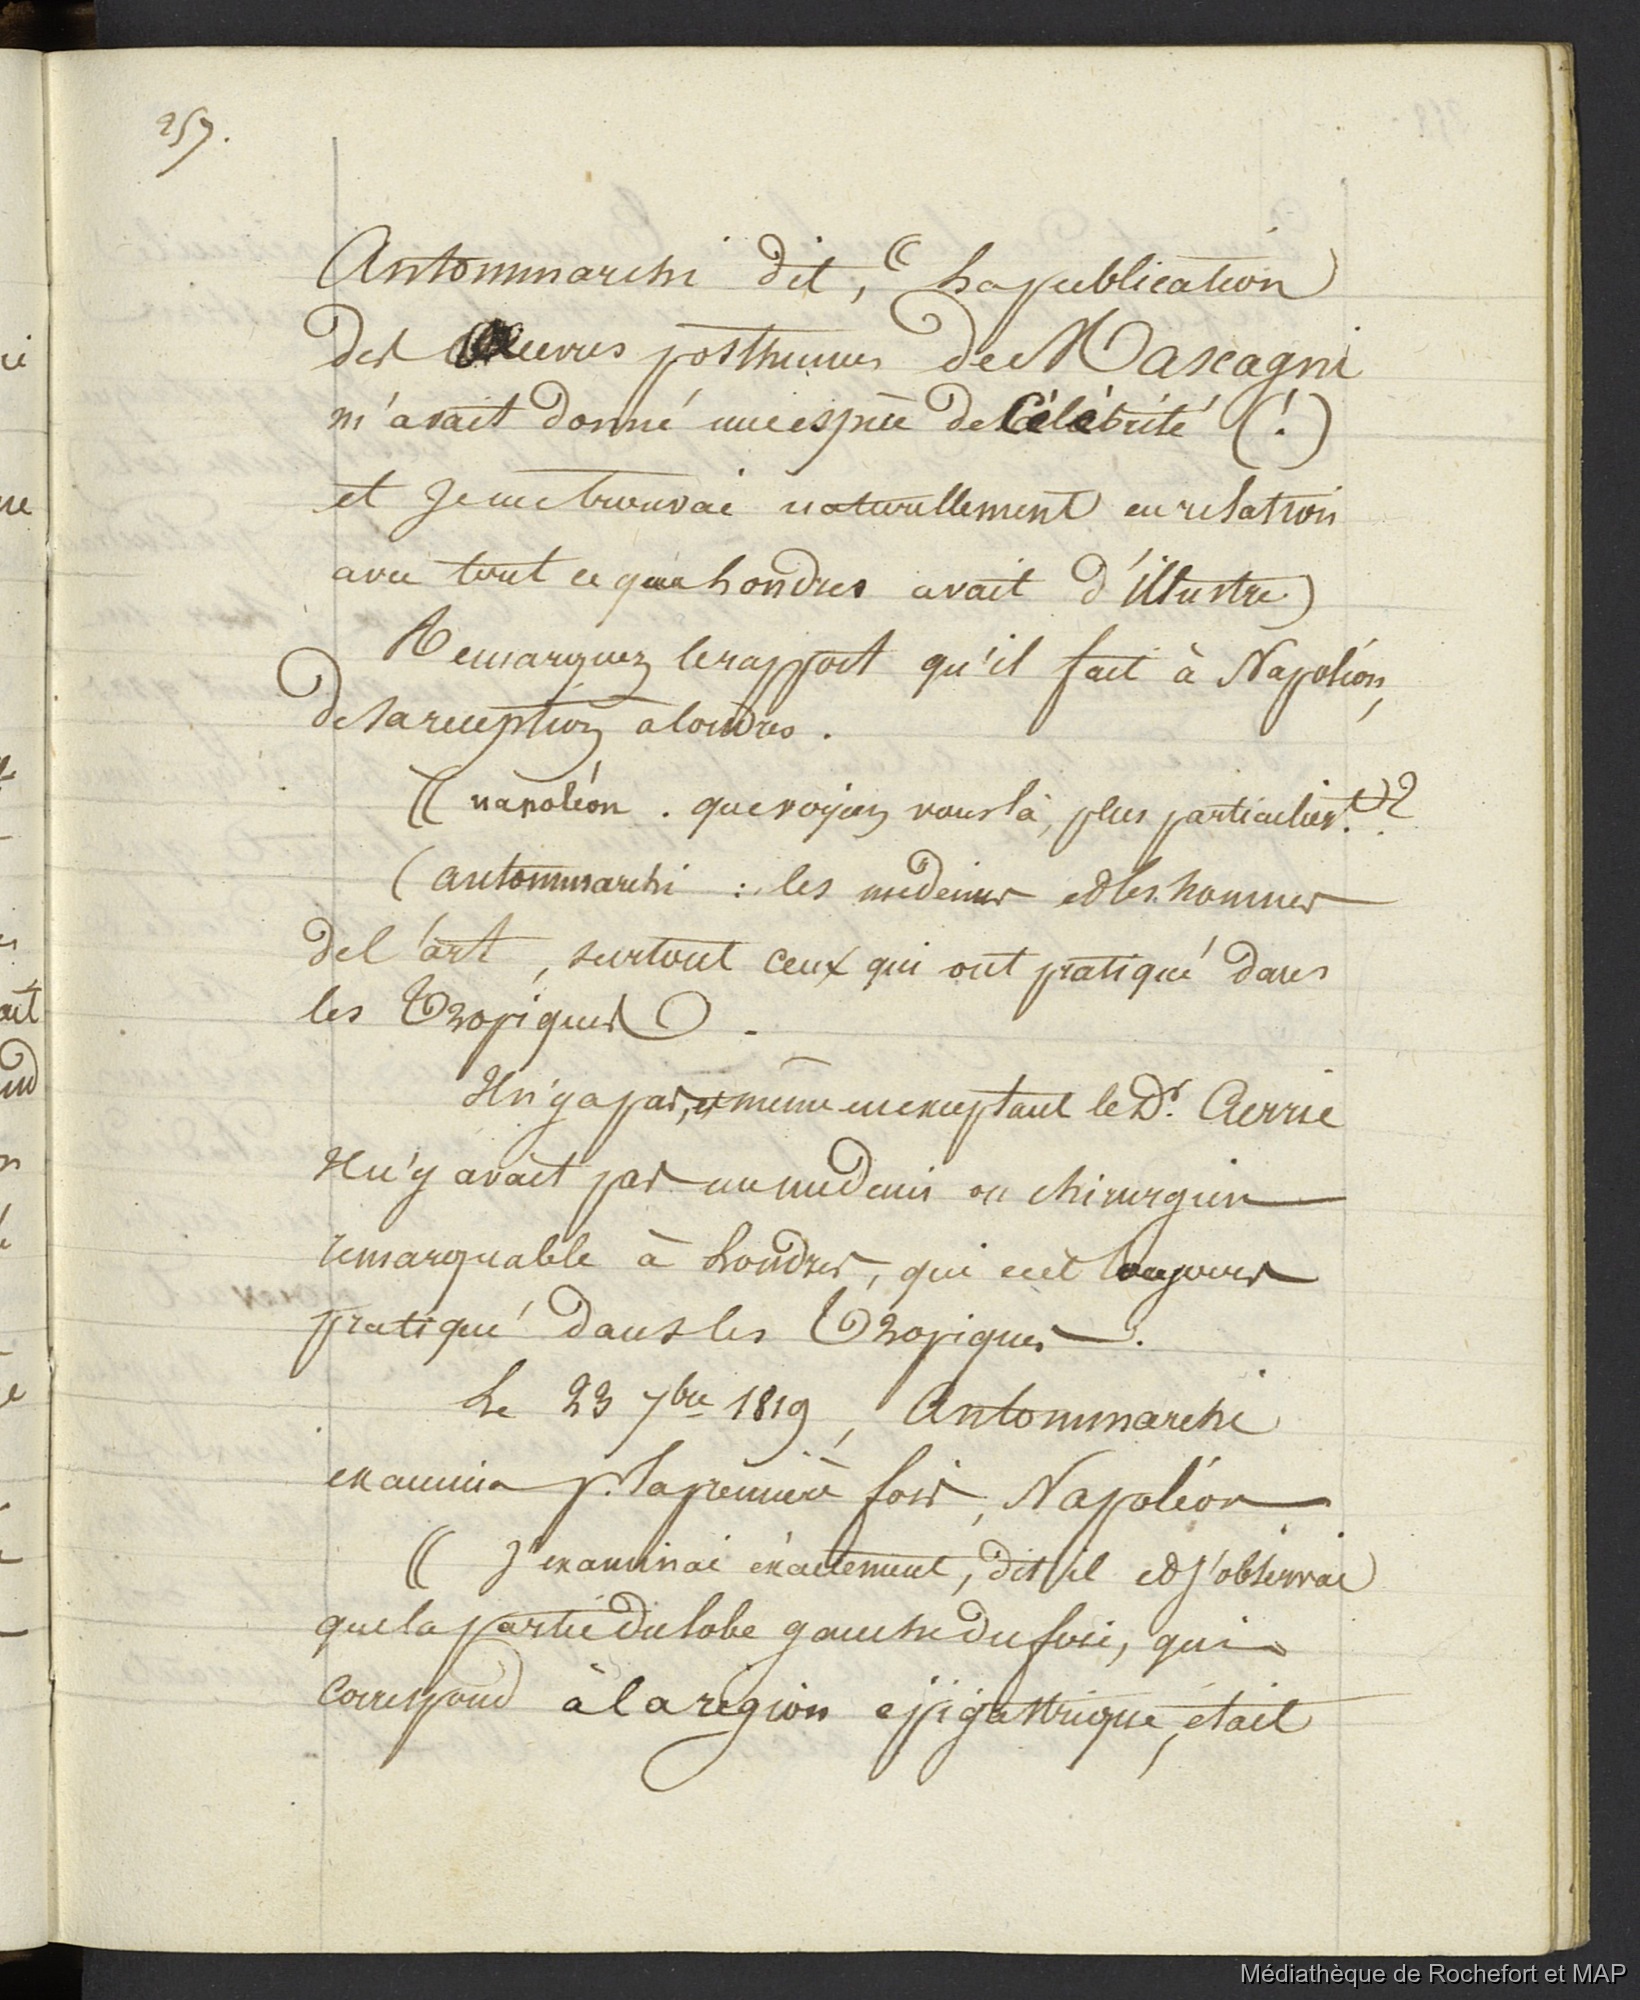 257.
Antommarchi dit, (( La publication
des Oeuvres posthumes de Mascagni
m'avait donné une espèce de Célébrité (!)
et je me trouvai naturellement en relation
avec tout ce que Londres avait d'illustre)
Remarquez le rapport qu'il fait à Napoléon,
de sa reception a londres.
(( napoléon . que voyiez vous là, plus particulièrt. ?
( antommarchi : les medecins et les hommes
de l'art, surtout ceux qui ont pratiqué dans
les Tropiques ) .
Il n'y a pas, et même en exceptant le Dr.
Il n'y avait pas un medecin ou chirurgien
remarquable à Londres, qui eut toujours
pratiqué dans les Tropiques.
Le 23 7bre 1819, Antommarchi
examina p. la première fois, Napoléon
(( J'examinai exactement, dit il et j'observai
que la partie du lobe gauche du foie, qui
correspond à la région epigastrique, était
Médiathèque de Rochefort et MAP